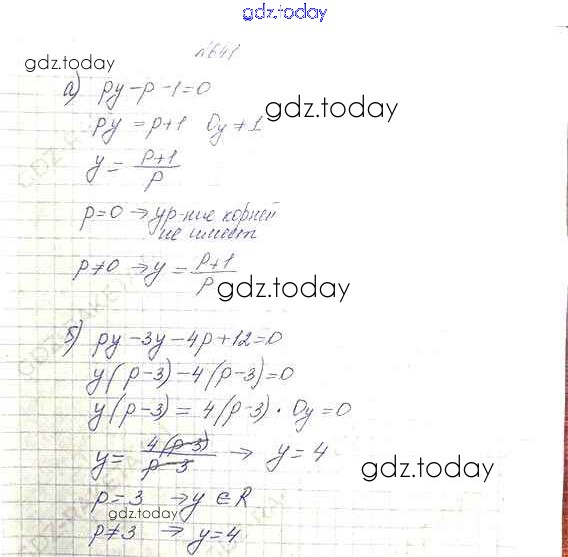 gdz.today
№641
gdz.today
а) py-p-1=0
gdz.today
py = p+1 0y≠1
y = p+1/p
p=0 → ур-ние корней
не имеет
p≠0 → y = p+1/p
gdz.today
б) py-3y-4p+12=0
y(p-3)-4(p-3)=0
y(p-3) = 4(p-3) · 0y=0
y = 4(p-3)/p-3 → y=4
gdz.today
p=3 → y ∈ R
gdz.today
p≠3 → y=4